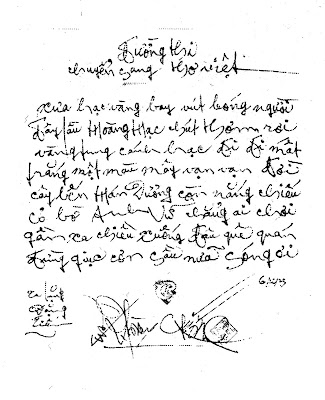 Đường thi
chuyển sang thơ việt
xưa hạc vàng bay vút bóng người
đây lầu Hoàng Hạc chút thơm rơi
vàng tung cánh hạc đi đi mất
trắng một màu mây vạn vạn đời
cây bến Hán Dương còn nắng chiều
cỏ bờ Anh Vũ chẳng ai chơi
gần xa chiều xuống đâu quê quán
đừng giục cơn sầu nữa sóng ơi